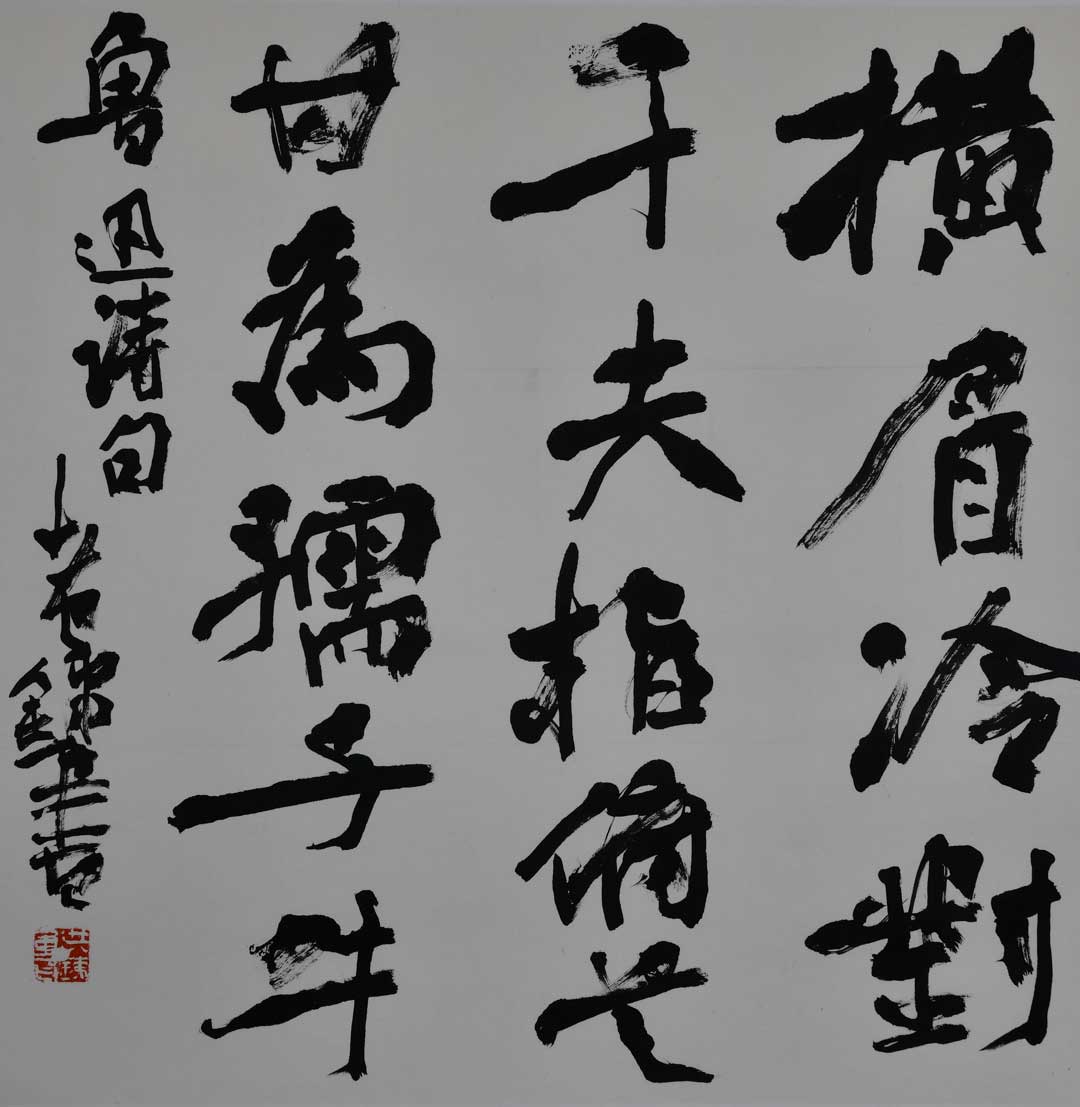 横眉冷對
千夫指俯首
甘為孺子牛
鲁迅诗句 書